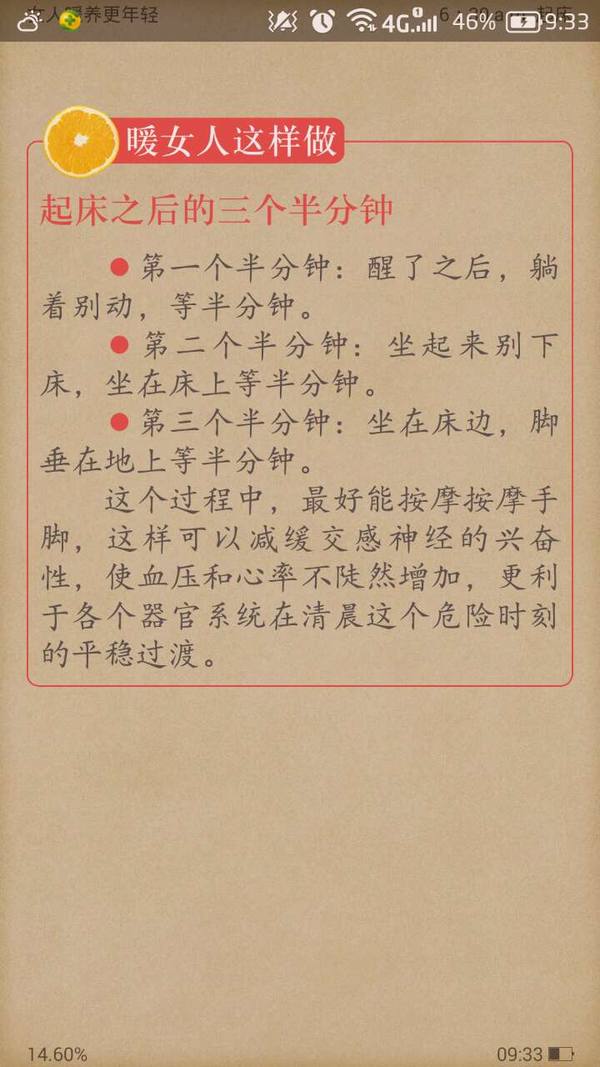 46% 9:33
4G
女人暖养更年轻
暖女人这样做
起床之后的三个半分钟
● 第一个半分钟：醒了之后，躺
着别动，等半分钟。
● 第二个半分钟：坐起来别下
床，坐在床上等半分钟。
● 第三个半分钟：坐在床边，脚
垂在地上等半分钟。
这个过程中，最好能按摩按摩手
脚，这样可以减缓交感神经的兴奋
性，使血压和心率不陡然增加，更利
于各个器官系统在清晨这个危险时刻
的平稳过渡。
14.60% 09:33